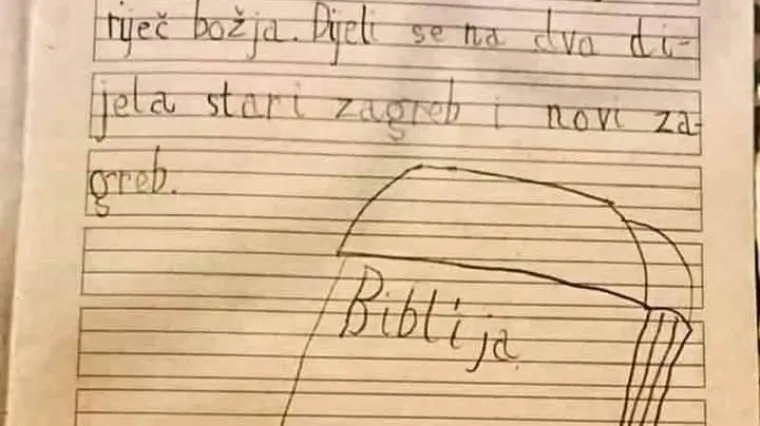 riječ božja. Dijeli se na dva di-
jela stari zagreb i novi za-
greb.
Biblija